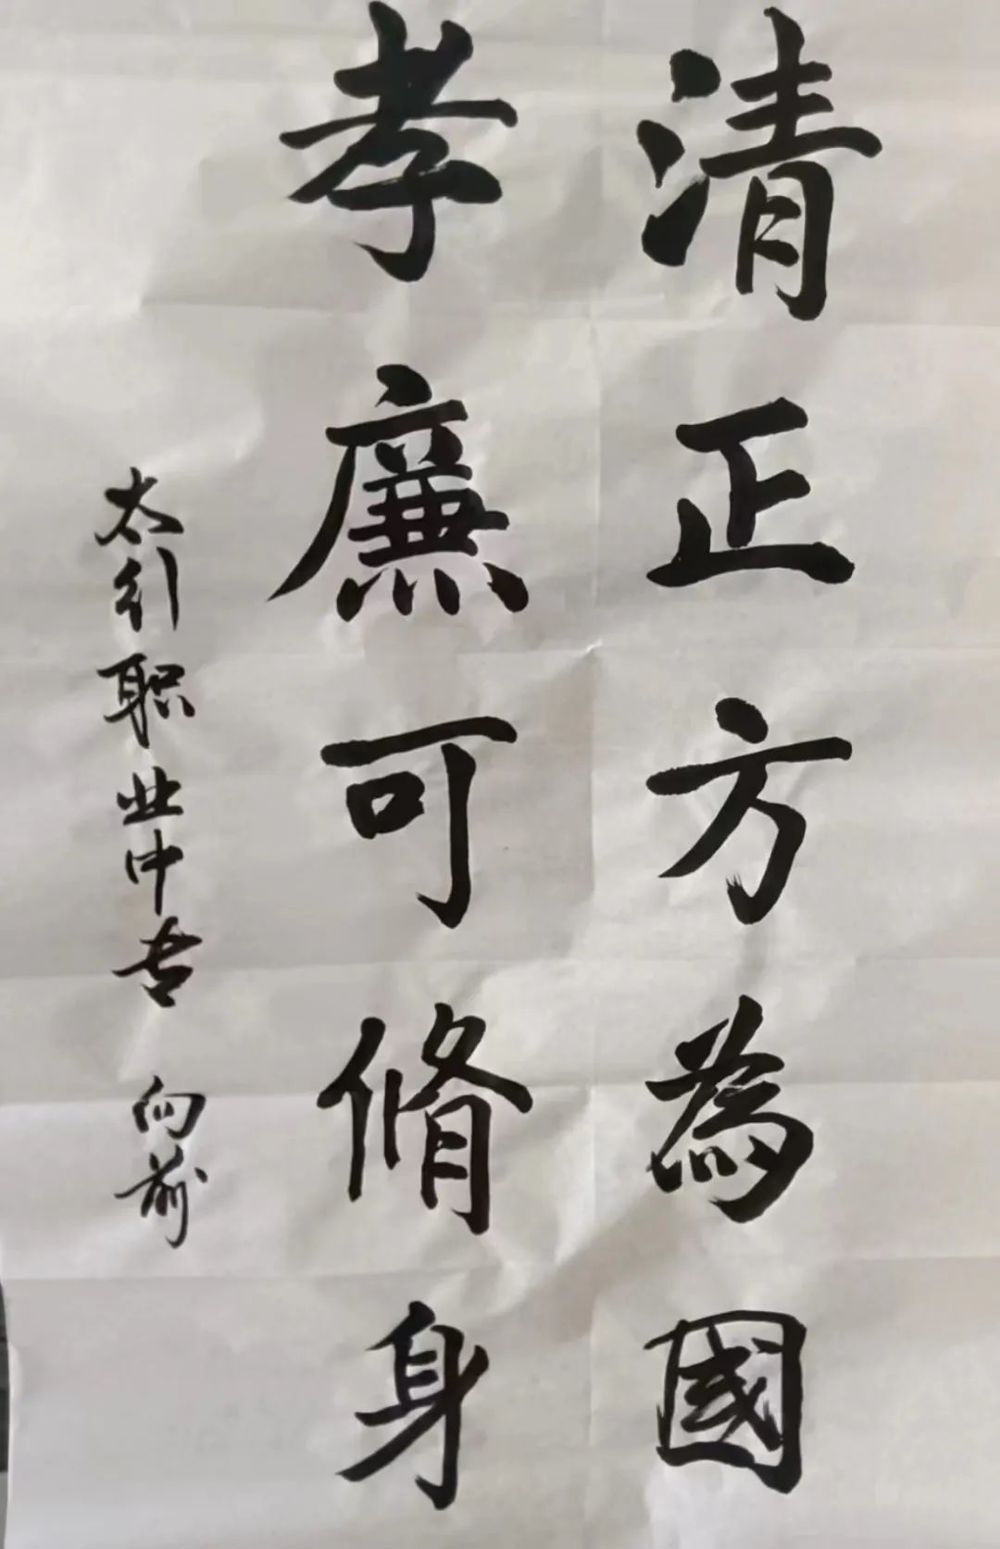 清正方為國
孝廉可脩身
太行职业中专 向前